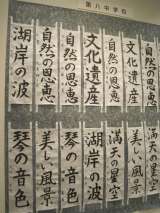 第八中学校
自然の恩恵
自然の恩恵
文化遺産
自然の恩恵
文化遺産
自然の恩恵
湖岸の波
満天の星空
美しい風景
満天の星空
琴の音色
琴の音色
美しい風景
琴の音色